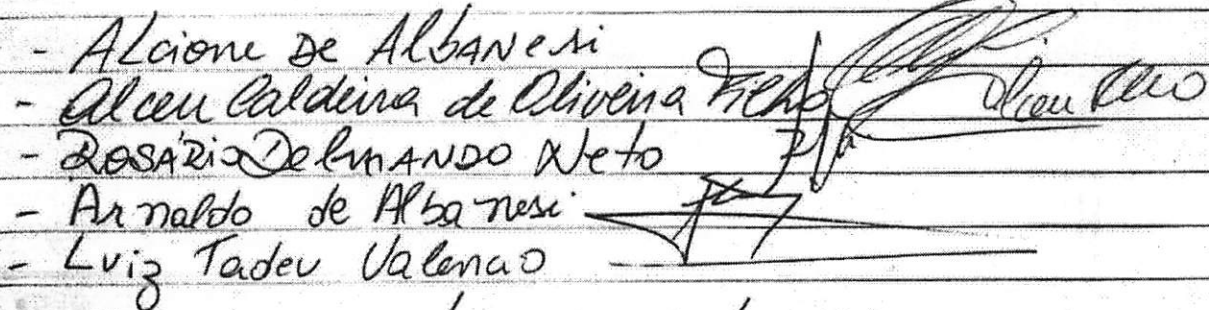 - Alcione De Albanesi
- Alceu Caldeira de Oliveira Filho
- Rosário Delmando Neto
- Arnaldo de Albanesi
- Luiz Tadeu Valencao